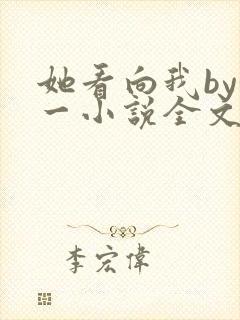 她看向我by
一小説全文
李宏偉